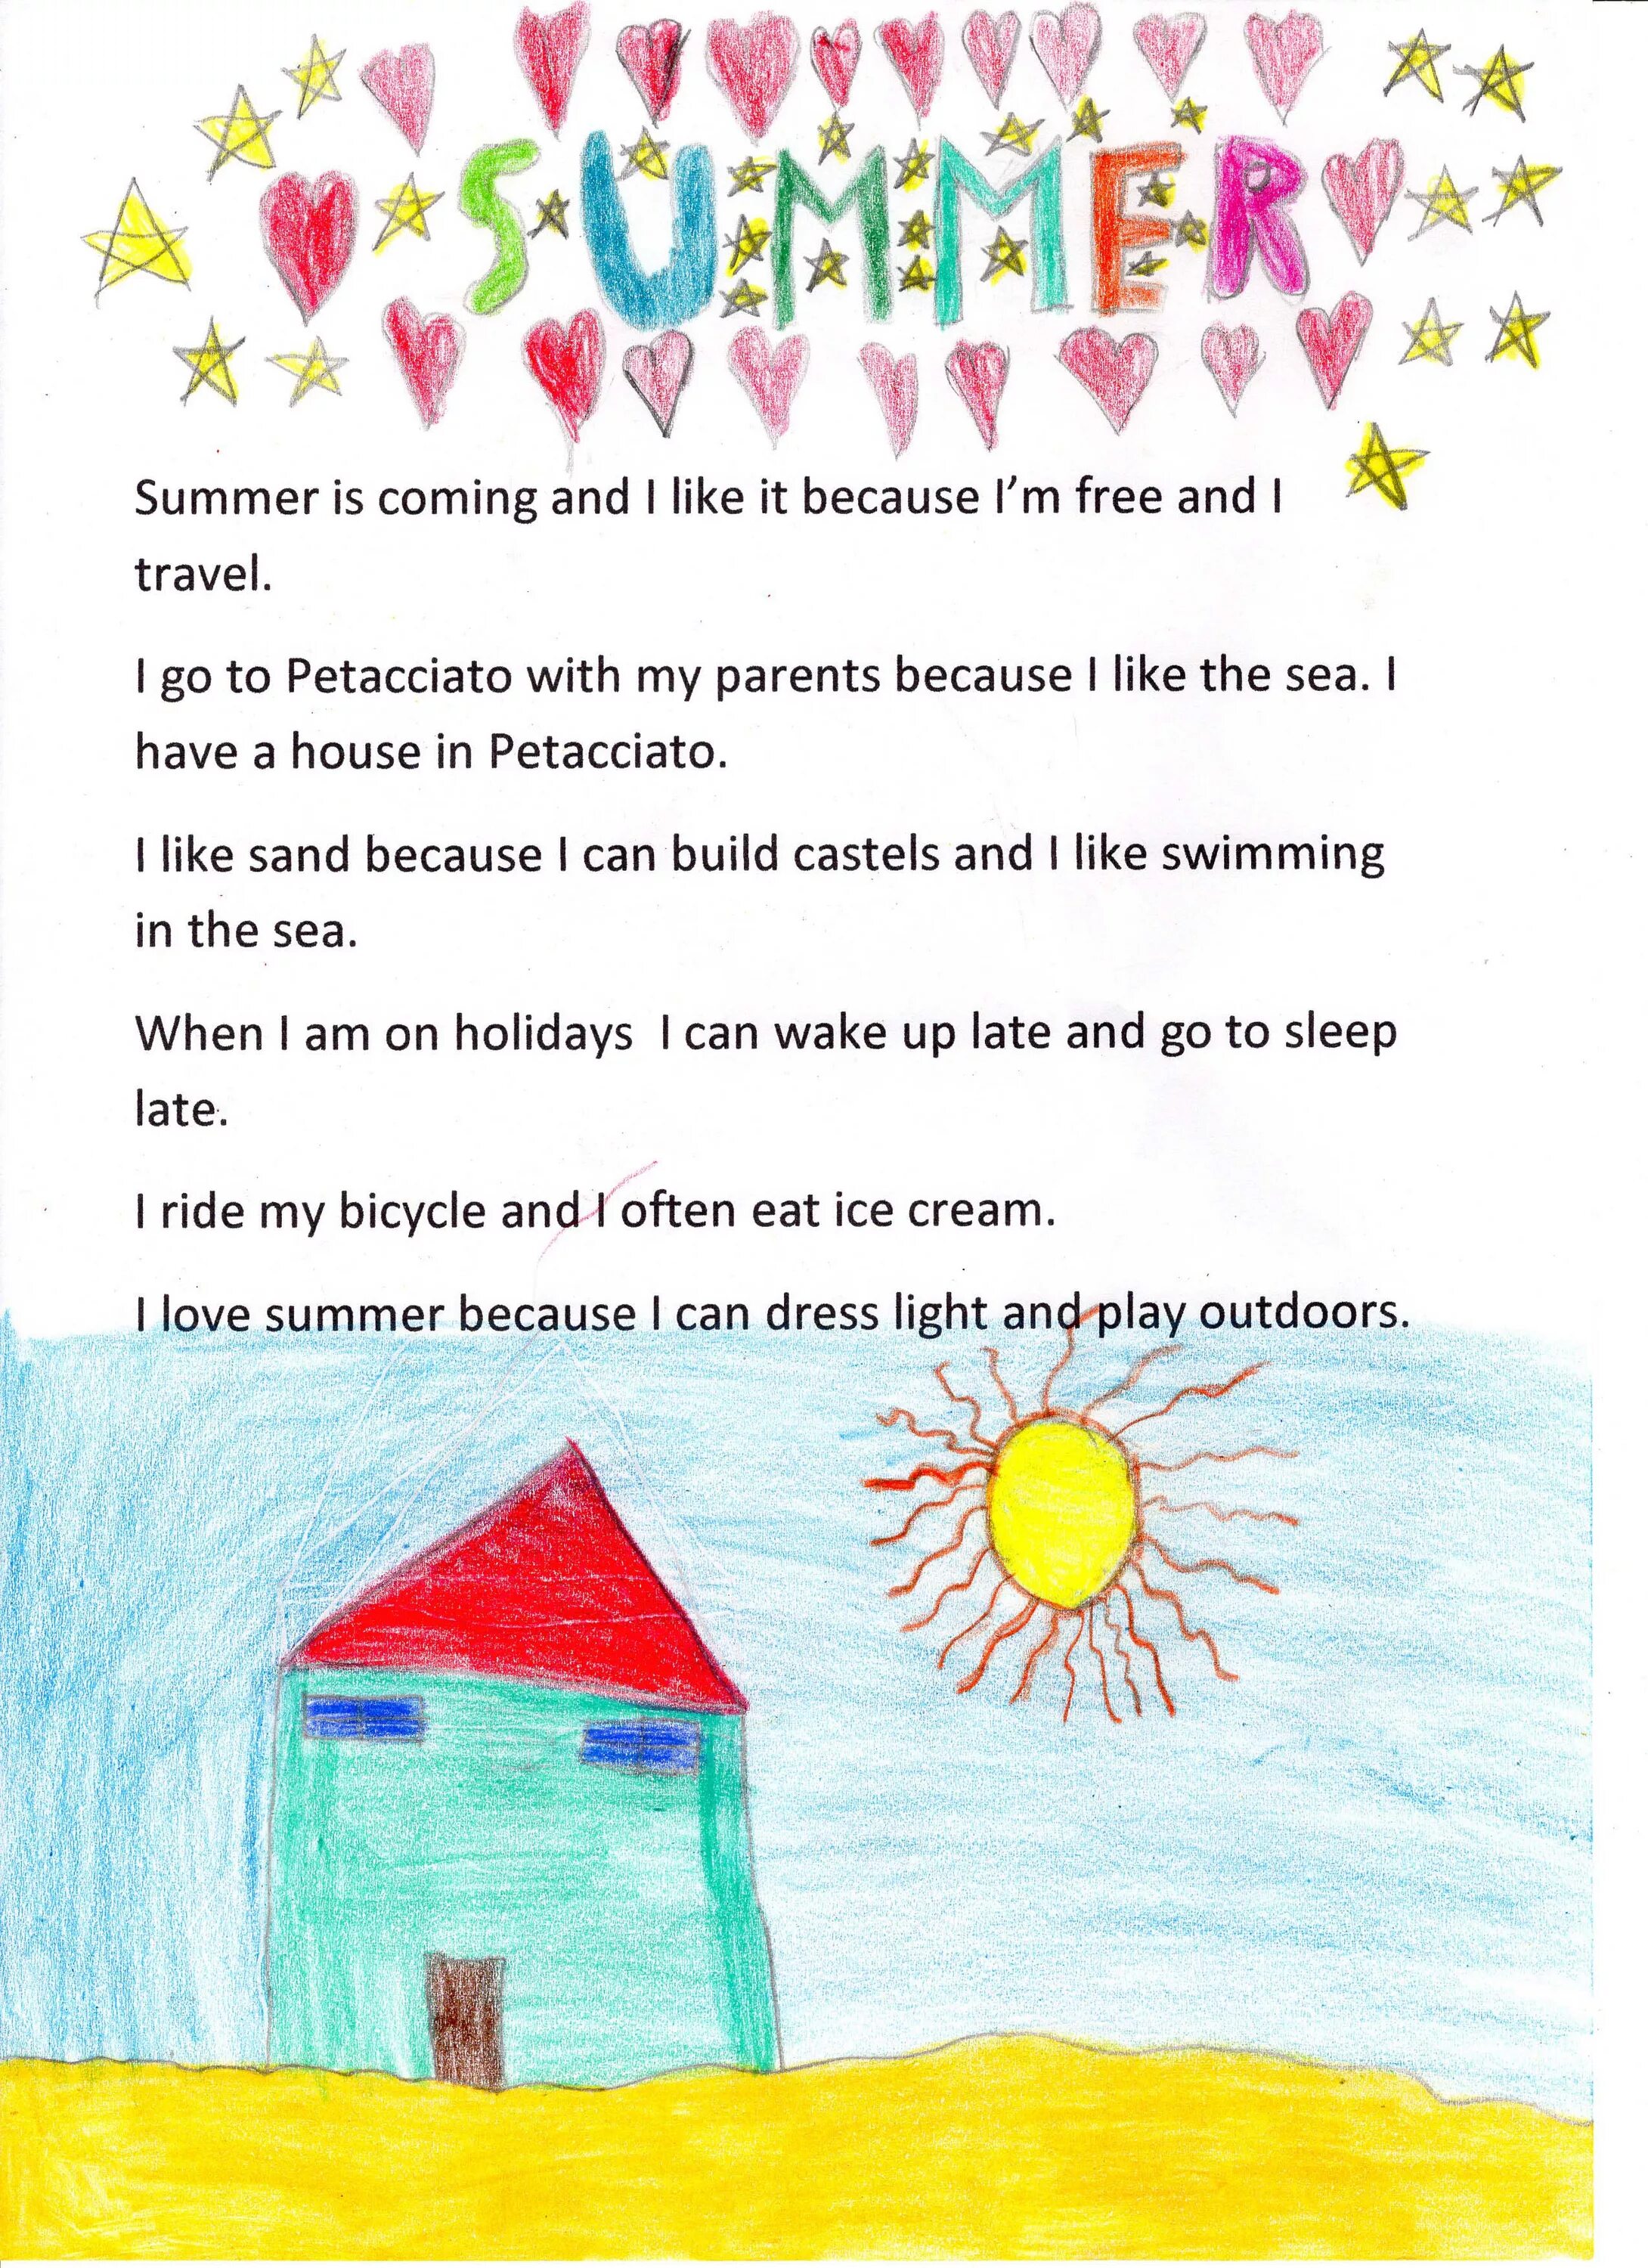 SUMMER
Summer is coming and I like it because I’m free and I
travel.
I go to Petacciato with my parents because I like the sea. I
have a house in Petacciato.
I like sand because I can build castels and I like swimming
in the sea.
When I am on holidays  I can wake up late and go to sleep
late.
I ride my bicycle and I often eat ice cream.
I love summer because I can dress light and play outdoors.